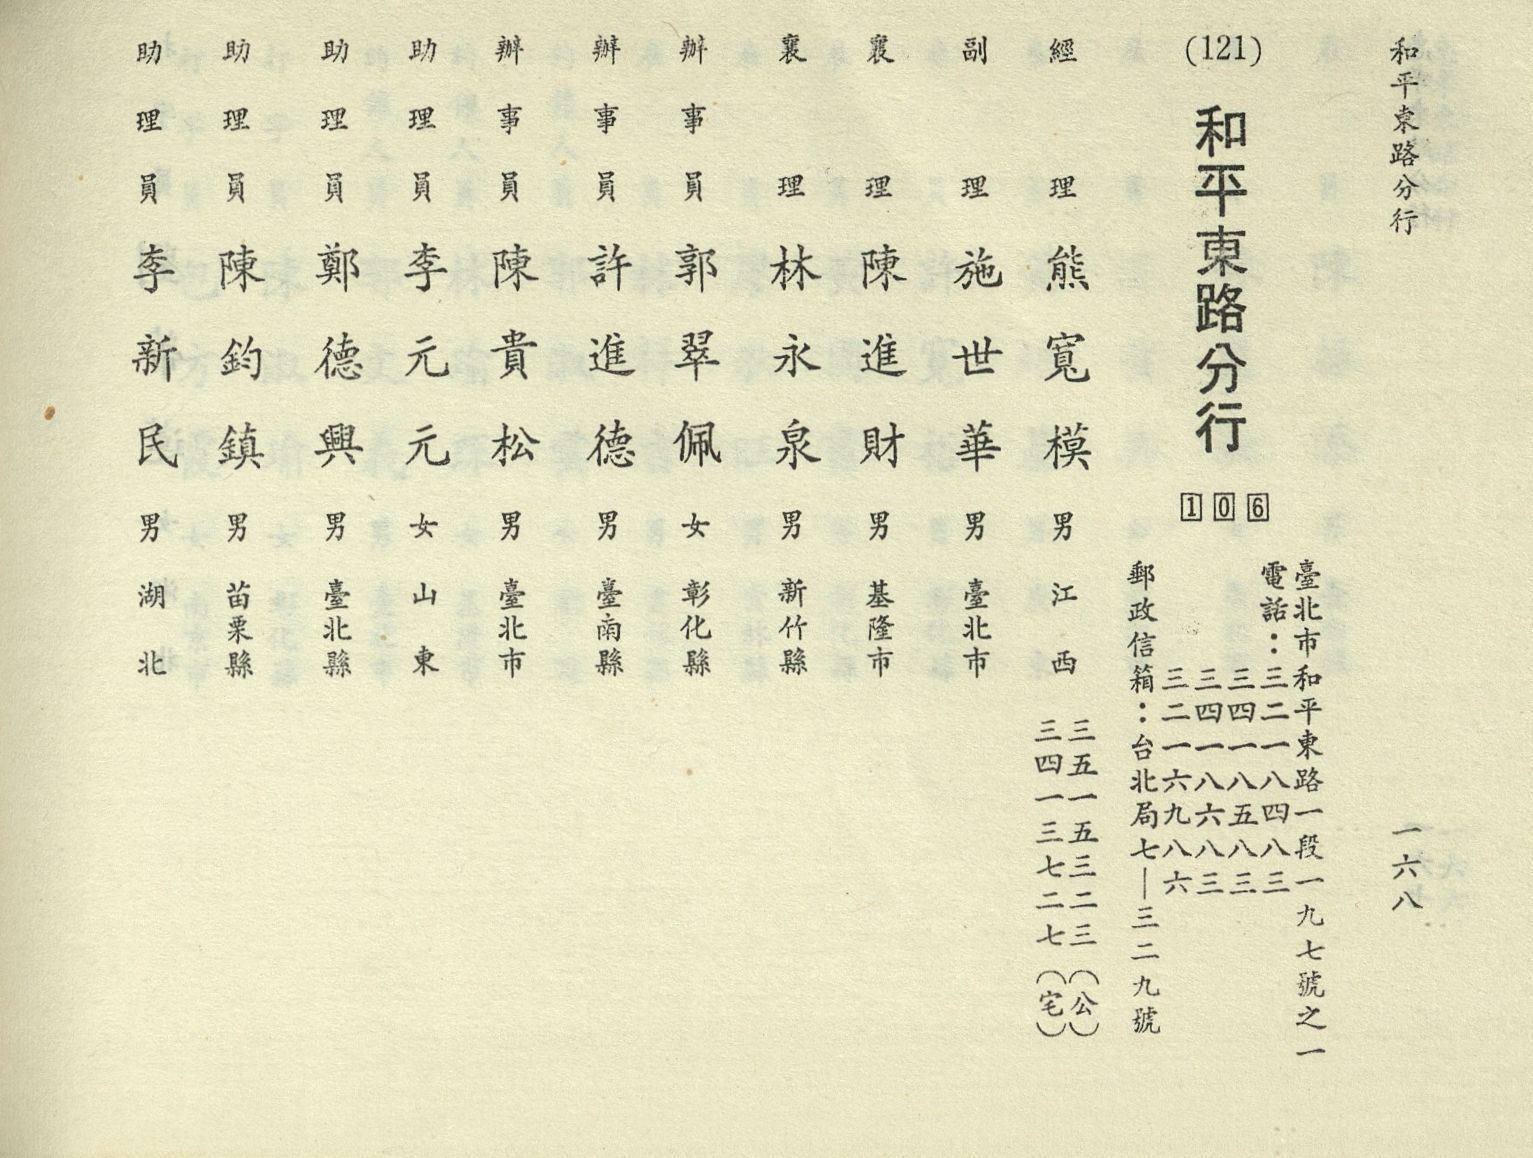 和平東路分行
一六八
(121)
和平東路分行
106
臺北市和平東路一段一九七號之一
電話：三二一八四八三
三四一八五八三
三四一八六八三
三二一六九八六
郵政信箱：台北局七—三二九號
經理 熊寬模 男 江西 三五一五三二三（公）
三四一三七二七（宅）
副理 施世華 男 臺北市
襄理 陳進財 男 基隆市
襄理 林永泉 男 新竹縣
辦事員 郭翠佩 女 彰化縣
辦事員 許進德 男 臺南縣
辦事員 陳貴松 男 臺北市
助理員 李元元 女 山東
助理員 鄭德興 男 臺北縣
助理員 陳鈞鎮 男 苗栗縣
助理員 李新民 男 湖北